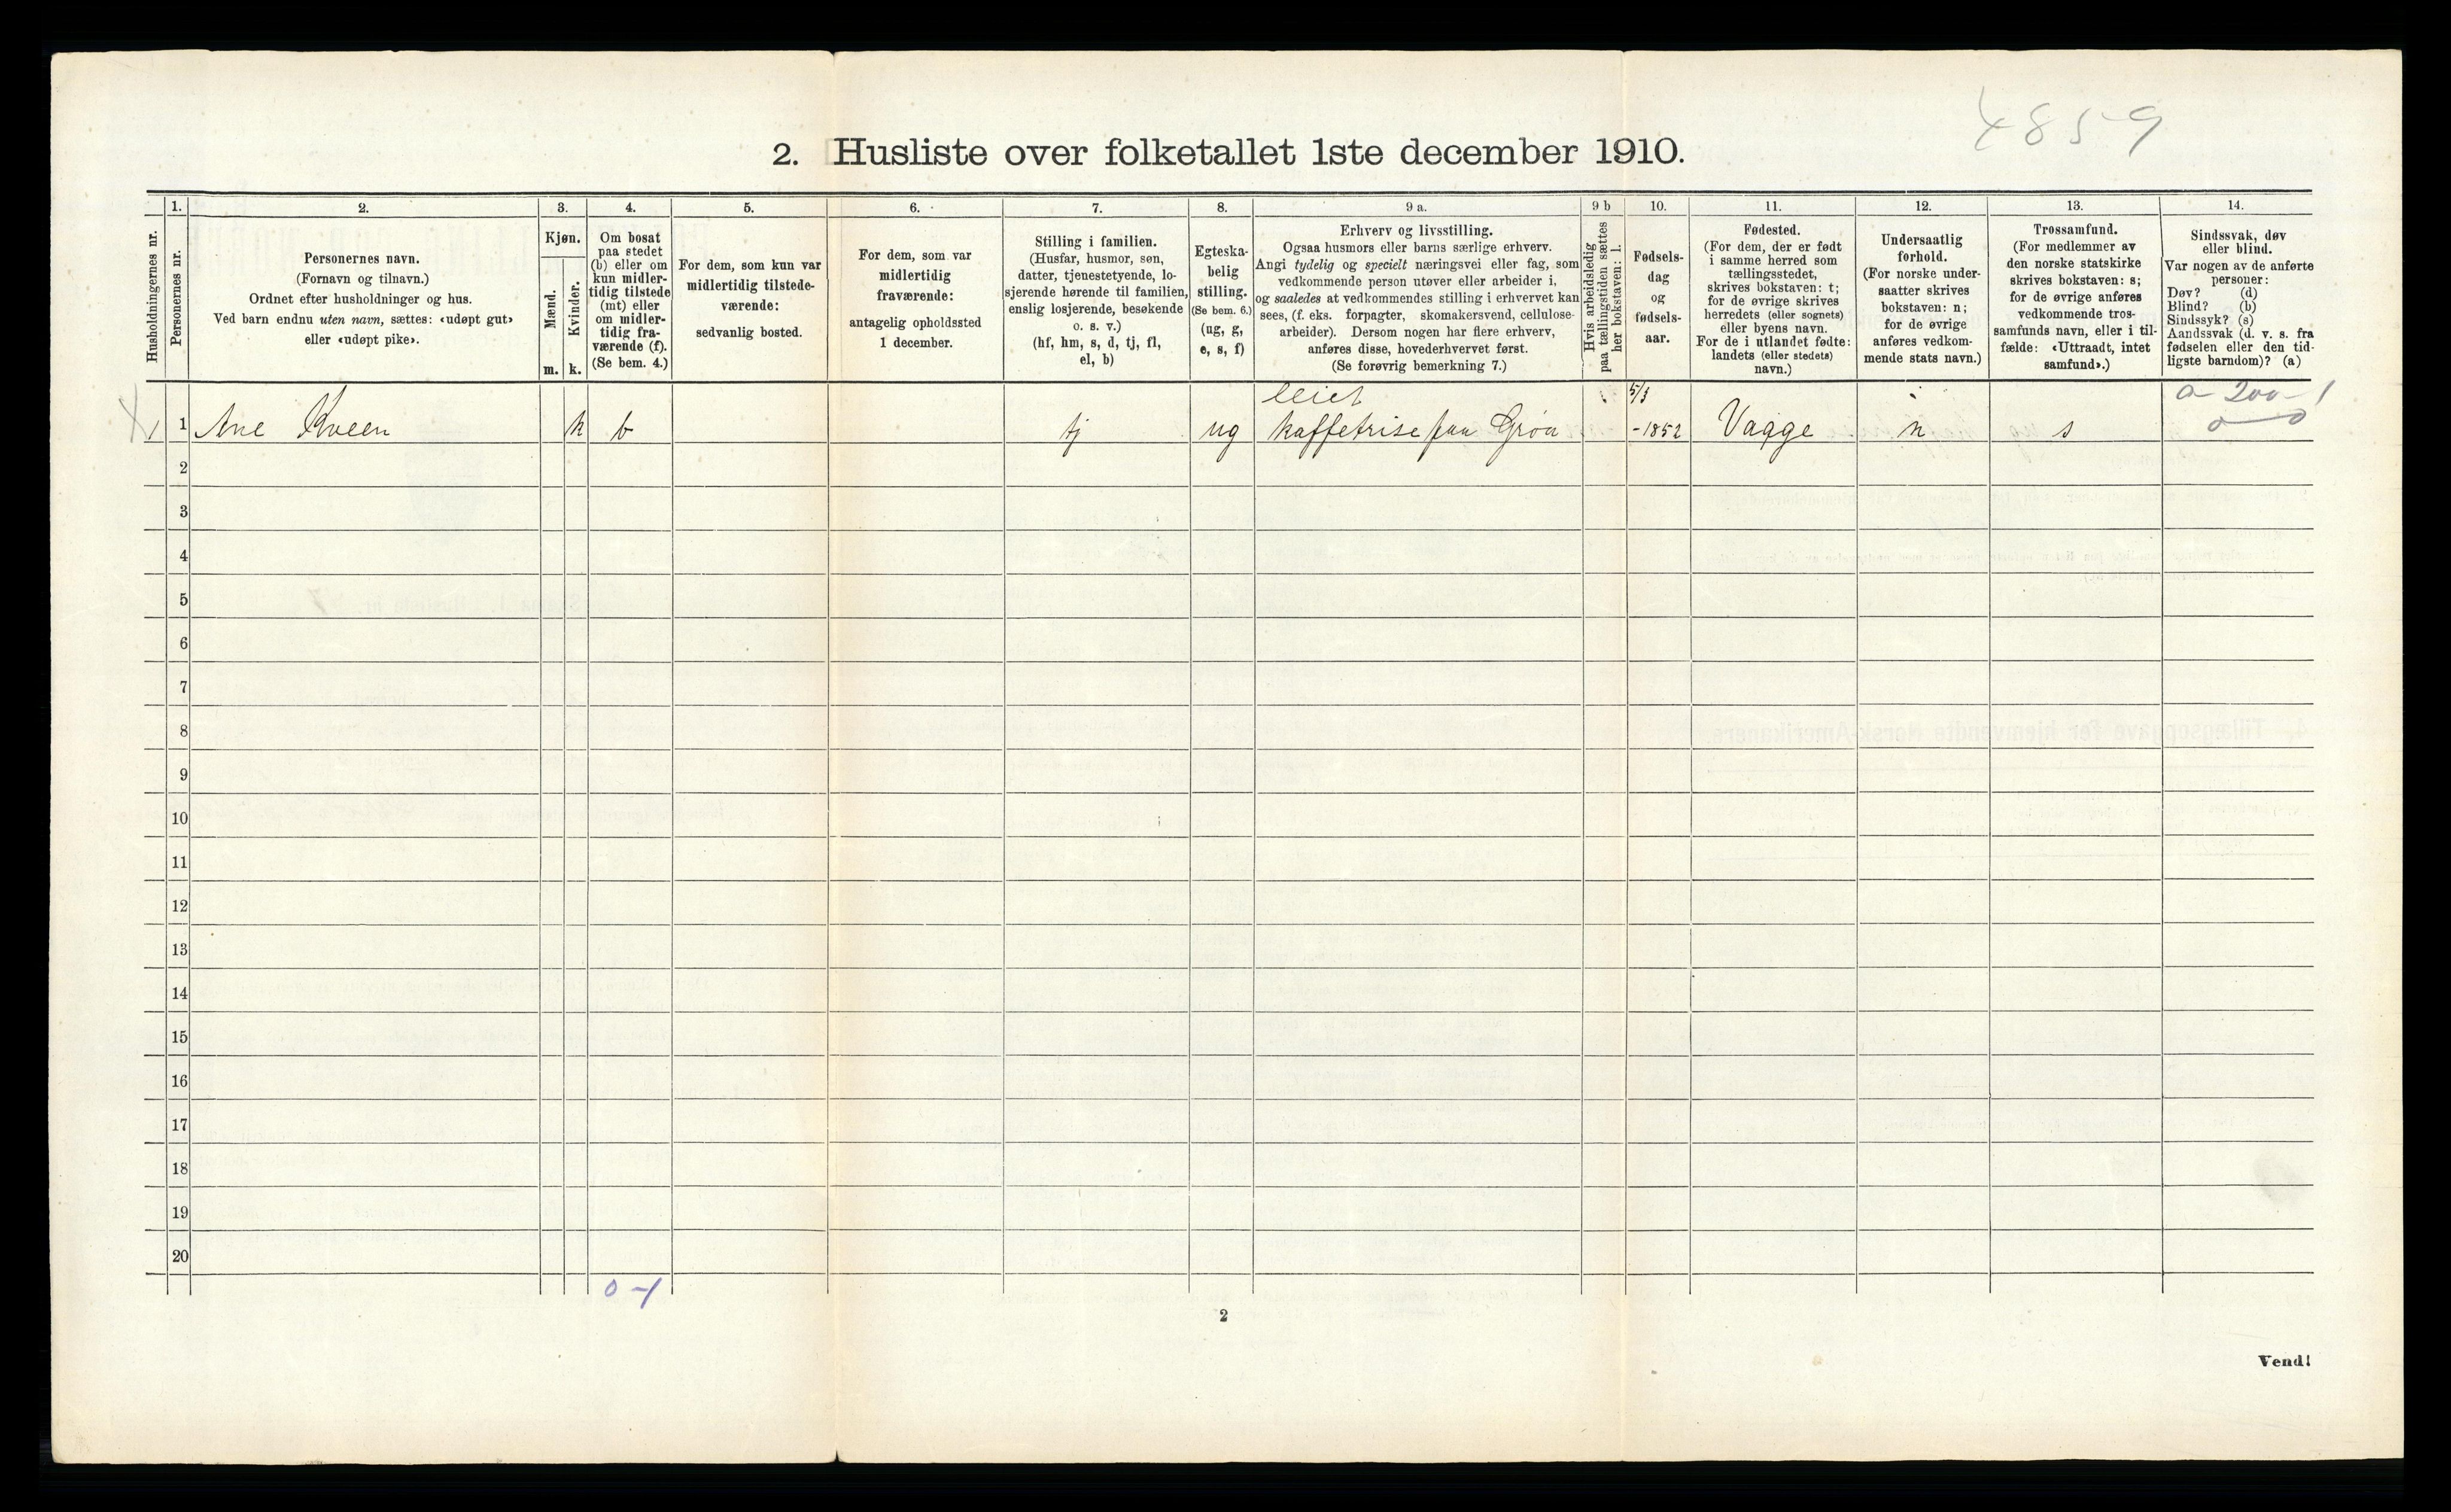 4859
2. Husliste over folketallet 1ste december 1910.
Husholdningernes nr.
1.
Personernes nr.
2.
Personernes navn.
(Fornavn og tilnavn.)
Ordnet efter husholdninger og hus.
Ved barn endnu uten navn, sættes: «udøpt gut»
eller «udøpt pike».
3.
Kjøn.
Mænd.
Kvinder.
m.
k.
4.
Om bosat
paa stedet
(b) eller om
kun midler-
tidig tilstede
(mt) eller
om midler-
tidig fra-
værende (f).
(Se bem. 4.)
5.
For dem, som kun var
midlertidig tilstede-
værende:
sedvanlig bosted.
6.
For dem, som var
midlertidig
fraværende:
antagelig opholdssted
1 december.
7.
Stilling i familien.
(Husfar, husmor, søn,
datter, tjenestetyende, lo-
sjerende hørende til familien,
enslig losjerende, besøkende
o. s. v.)
(hf, hm, s, d, tj, fl,
el, b)
8.
Egteska-
belig
stilling.
(Se bem. 6.)
(ug, g,
e, s, f)
9 a.
Erhverv og livsstilling.
Ogsaa husmors eller barns særlige erhverv.
Angi tydelig og specielt næringsvei eller fag, som
vedkommende person utøver eller arbeider i,
og saaledes at vedkommendes stilling i erhvervet kan
sees, (f. eks. forpagter, skomakersvend, cellulose-
arbeider). Dersom nogen har flere erhverv,
anføres disse, hovederhvervet først.
(Se forøvrig bemerkning 7.)
9 b
Hvis arbeidsledig
paa tællingstiden sættes
her bokstaven: l.
10.
Fødsels-
dag
og
fødsels-
aar.
11.
Fødested.
(For dem, der er født
i samme herred som
tællingsstedet,
skrives bokstaven: t;
for de øvrige skrives
herredets (eller sognets)
eller byens navn.
For de i utlandet fødte:
landets (eller stedets)
navn.)
12.
Undersaatlig
forhold.
(For norske under-
saatter skrives
bokstaven: n;
for de øvrige
anføres vedkom-
mende stats navn.)
13.
Trossamfund.
(For medlemmer av
den norske statskirke
skrives bokstaven: s;
for de øvrige anføres
vedkommende tros-
samfunds navn, eller i til-
fælde: «Uttraadt, intet
samfund».)
14.
Sindssvak, døv
eller blind.
Var nogen av de anførte
personer:
Døv? (d)
Blind? (b)
Sindssyk? (s)
Aandssvak (d. v. s. fra
fødselen eller den tid-
ligste barndom)? (a)
leiet 5/3 a- 200-1
1 1 Ane Kveen k b tj ug kaffetrise paa Grøa -1852 Vaage n s 0 0
2
3
4
5
6
7
8
9
10
11
12
13
14
15
16
17
18
19
20
0-1
2
Vend!